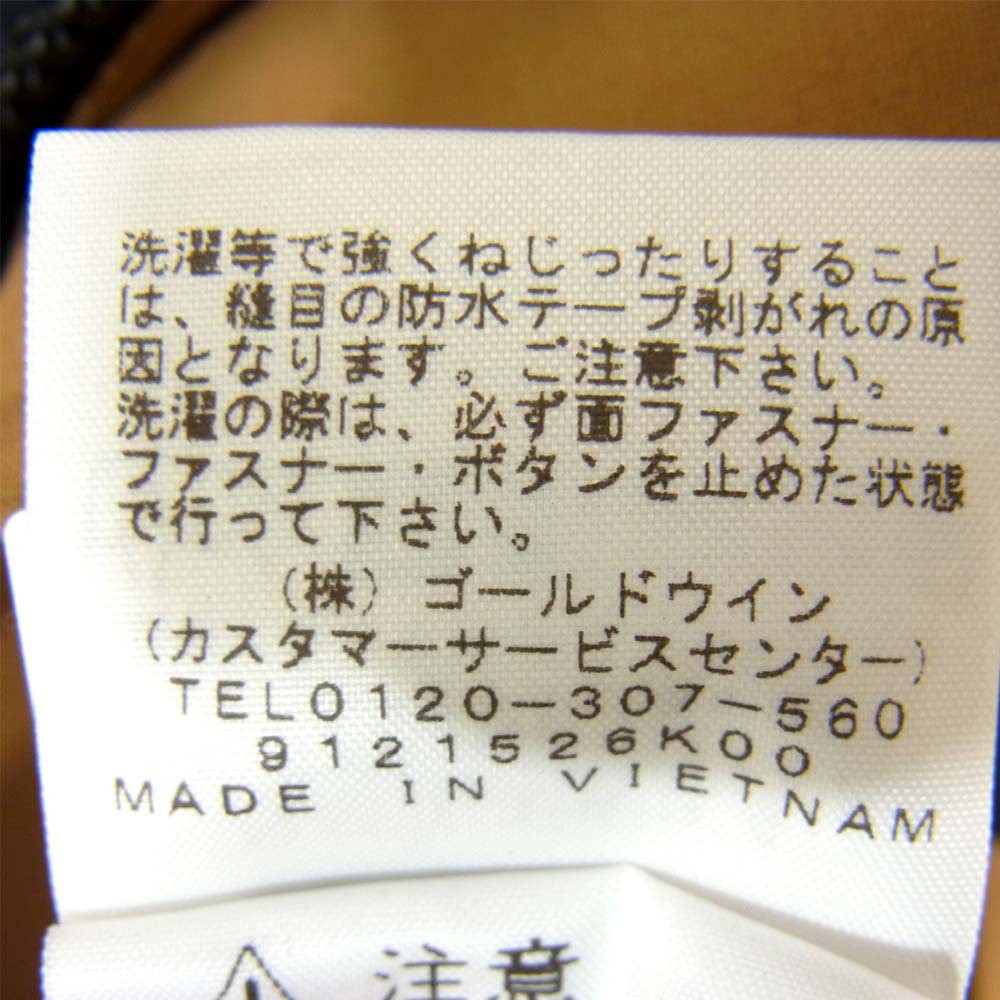 洗濯等で強くねじったりすること
は、縫目の防水テープ剥がれの原
因となります。ご注意下さい。
洗濯の際は、必ず面ファスナー・
ファスナー・ボタンを止めた状態
で行って下さい。
(株) ゴールドウイン
(カスタマーサービスセンター)
TEL0120-307-560
9121526K00
MADE IN VIETNAM
注意